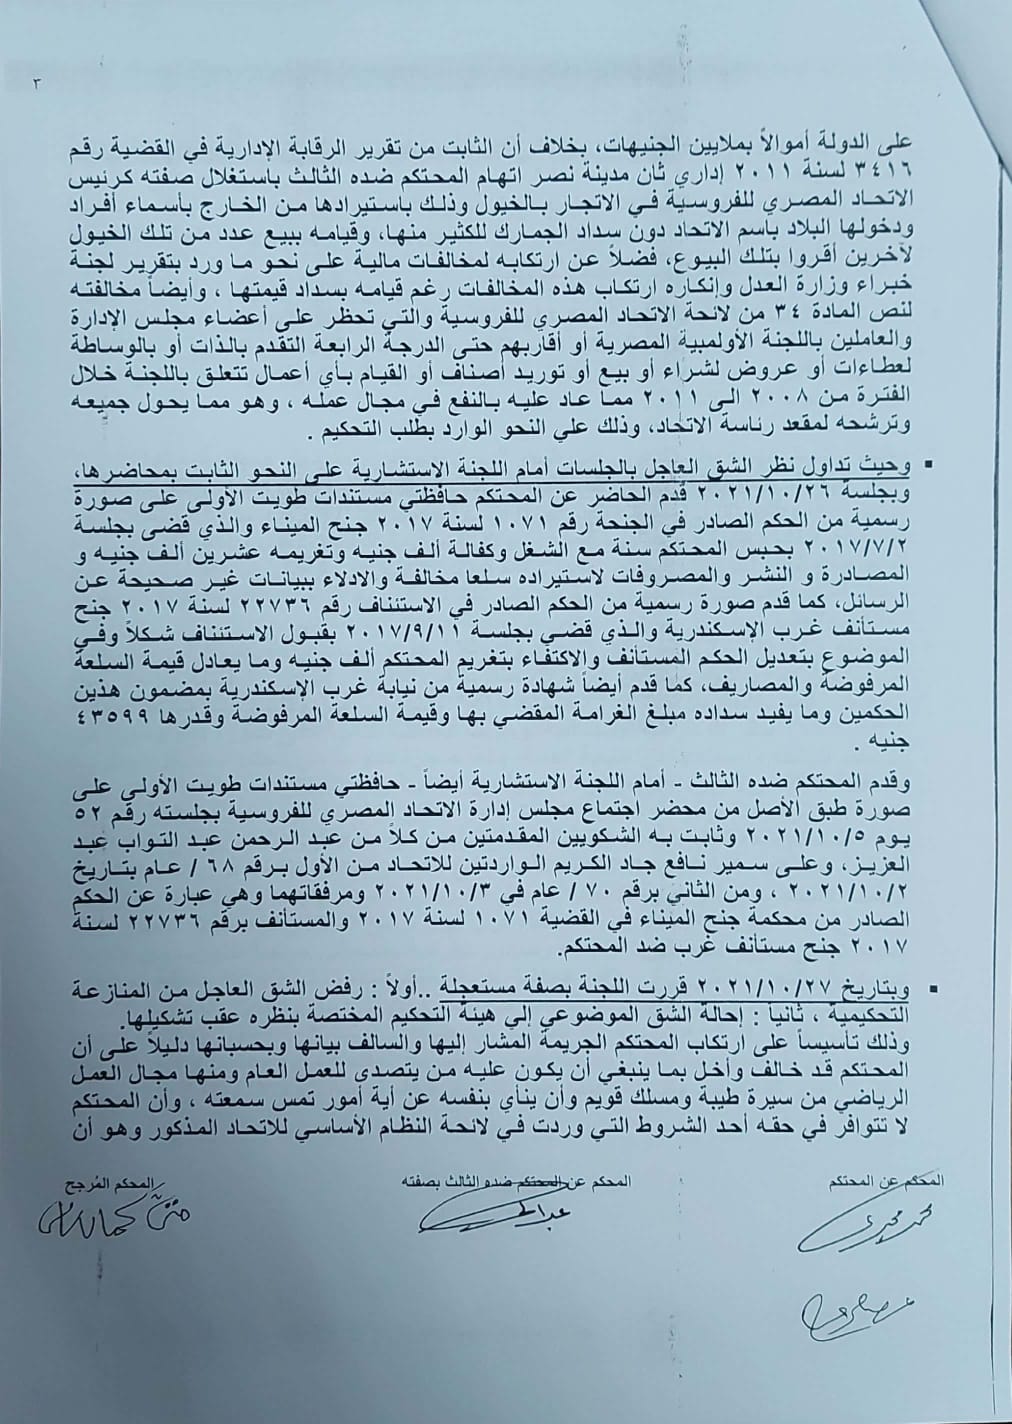 ٣
على الدولة أموالاً بملايين الجنيهات، بخلاف أن الثابت من تقرير الرقابة الإدارية في القضية رقم
٣٤١٦ لسنة ٢٠١١ إداري ثان مدينة نصر اتهام المحتكم ضده الثالث باستغلال صفته كرئيس
الاتحاد المصري للفروسية في الاتجار بالخيول وذلك باستيرادها من الخارج بأسماء أفراد
ودخولها البلاد باسم الاتحاد دون سداد الجمارك للكثير منها، وقيامه ببيع عدد من تلك الخيول
لآخرين أقروا بتلك البيوع، فضلاً عن ارتكابه لمخالفات مالية على نحو ما ورد بتقرير لجنة
خبراء وزارة العدل وإنكاره ارتكاب هذه المخالفات رغم قيامه بسداد قيمتها ، وأيضاً مخالفته
لنص المادة ٣٤ من لائحة الاتحاد المصري للفروسية والتي تحظر على أعضاء مجلس الإدارة
والعاملين باللجنة الأولمبية المصرية أو أقاربهم حتى الدرجة الرابعة التقدم بالذات أو بالوساطة
لعطاءات أو عروض لشراء أو بيع أو توريد أصناف أو القيام بأي أعمال تتعلق باللجنة خلال
الفترة من ٢٠٠٨ الى ٢٠١١ مما عاد عليه بالنفع في مجال عمله ، وهو مما يحول جميعه
وترشحه لمقعد رئاسة الاتحاد، وذلك علي النحو الوارد بطلب التحكيم .
▪ وحيث تداول نظر الشق العاجل بالجلسات أمام اللجنة الإستشارية على النحو الثابت بمحاضرها،
وبجلسة ٢٠٢١/١٠/٢٦ قدم الحاضر عن المحتكم حافظتي مستندات طويت الأولى على صورة
رسمية من الحكم الصادر في الجنحة رقم ١٠٧١ لسنة ٢٠١٧ جنح الميناء والذي قضى بجلسة
٢٠١٧/٧/٢ بحبس المحتكم سنة مع الشغل وكفالة ألف جنيه وتغريمه عشرين ألف جنيه و
المصادرة و النشر والمصروفات لاستيراده سلعا مخالفة والادلاء ببيانات غير صحيحة عن
الرسائل، كما قدم صورة رسمية من الحكم الصادر في الاستئناف رقم ٢٢٧٣٦ لسنة ٢٠١٧ جنح
مستأنف غرب الإسكندرية والذي قضي بجلسة ٢٠١٧/٩/١١ بقبول الاستئناف شكلاً وفي
الموضوع بتعديل الحكم المستأنف والاكتفاء بتغريم المحتكم ألف جنيه وما يعادل قيمة السلعة
المرفوضة والمصاريف، كما قدم أيضاً شهادة رسمية من نيابة غرب الإسكندرية بمضمون هذين
الحكمين وما يفيد سداده مبلغ الغرامة المقضي بها وقيمة السلعة المرفوضة وقدرها ٤٣٥٩٩
جنيه .
وقدم المحتكم ضده الثالث - أمام اللجنة الاستشارية أيضاً - حافظتي مستندات طويت الأولى على
صورة طبق الأصل من محضر اجتماع مجلس إدارة الاتحاد المصري للفروسية بجلسته رقم ٥٢
يوم ٢٠٢١/١٠/٥ وثابت به الشكويين المقدمتين من كلاً من عبد الرحمن عبد التواب عبد
العزيز، وعلى سمير نافع جاد الكريم الواردتين للاتحاد من الأول برقم ٦٨ / عام بتاريخ
٢٠٢١/١٠/٢ ، ومن الثاني برقم ٧٠ / عام في ٢٠٢١/١٠/٣ ومرفقاتهما وهي عبارة عن الحكم
الصادر من محكمة جنح الميناء في القضية ١٠٧١ لسنة ٢٠١٧ والمستأنف برقم ٢٢٧٣٦ لسنة
٢٠١٧ جنح مستأنف غرب ضد المحتكم.
▪ وبتاريخ ٢٠٢١/١٠/٢٧ قررت اللجنة بصفة مستعجلة ..أولاً : رفض الشق العاجل من المنازعة
التحكيمية ، ثانياً : إحالة الشق الموضوعي إلي هيئة التحكيم المختصة بنظره عقب تشكيلها.
وذلك تأسيساً على ارتكاب المحتكم الجريمة المشار إليها والسالف بيانها وبحسبانها دليلاً على أن
المحتكم قد خالف وأخل بما ينبغي أن يكون عليه من يتصدى للعمل العام ومنها مجال العمل
الرياضي من سيرة طيبة ومسلك قويم وأن ينأي بنفسه عن أية أمور تمس سمعته ، وأن المحتكم
لا تتوافر في حقه أحد الشروط التي وردت في لائحة النظام الأساسي للاتحاد المذكور وهو أن
المحكم عن المحتكم
المحكم عن المحتكم ضده الثالث بصفته
المحكم المُرجح